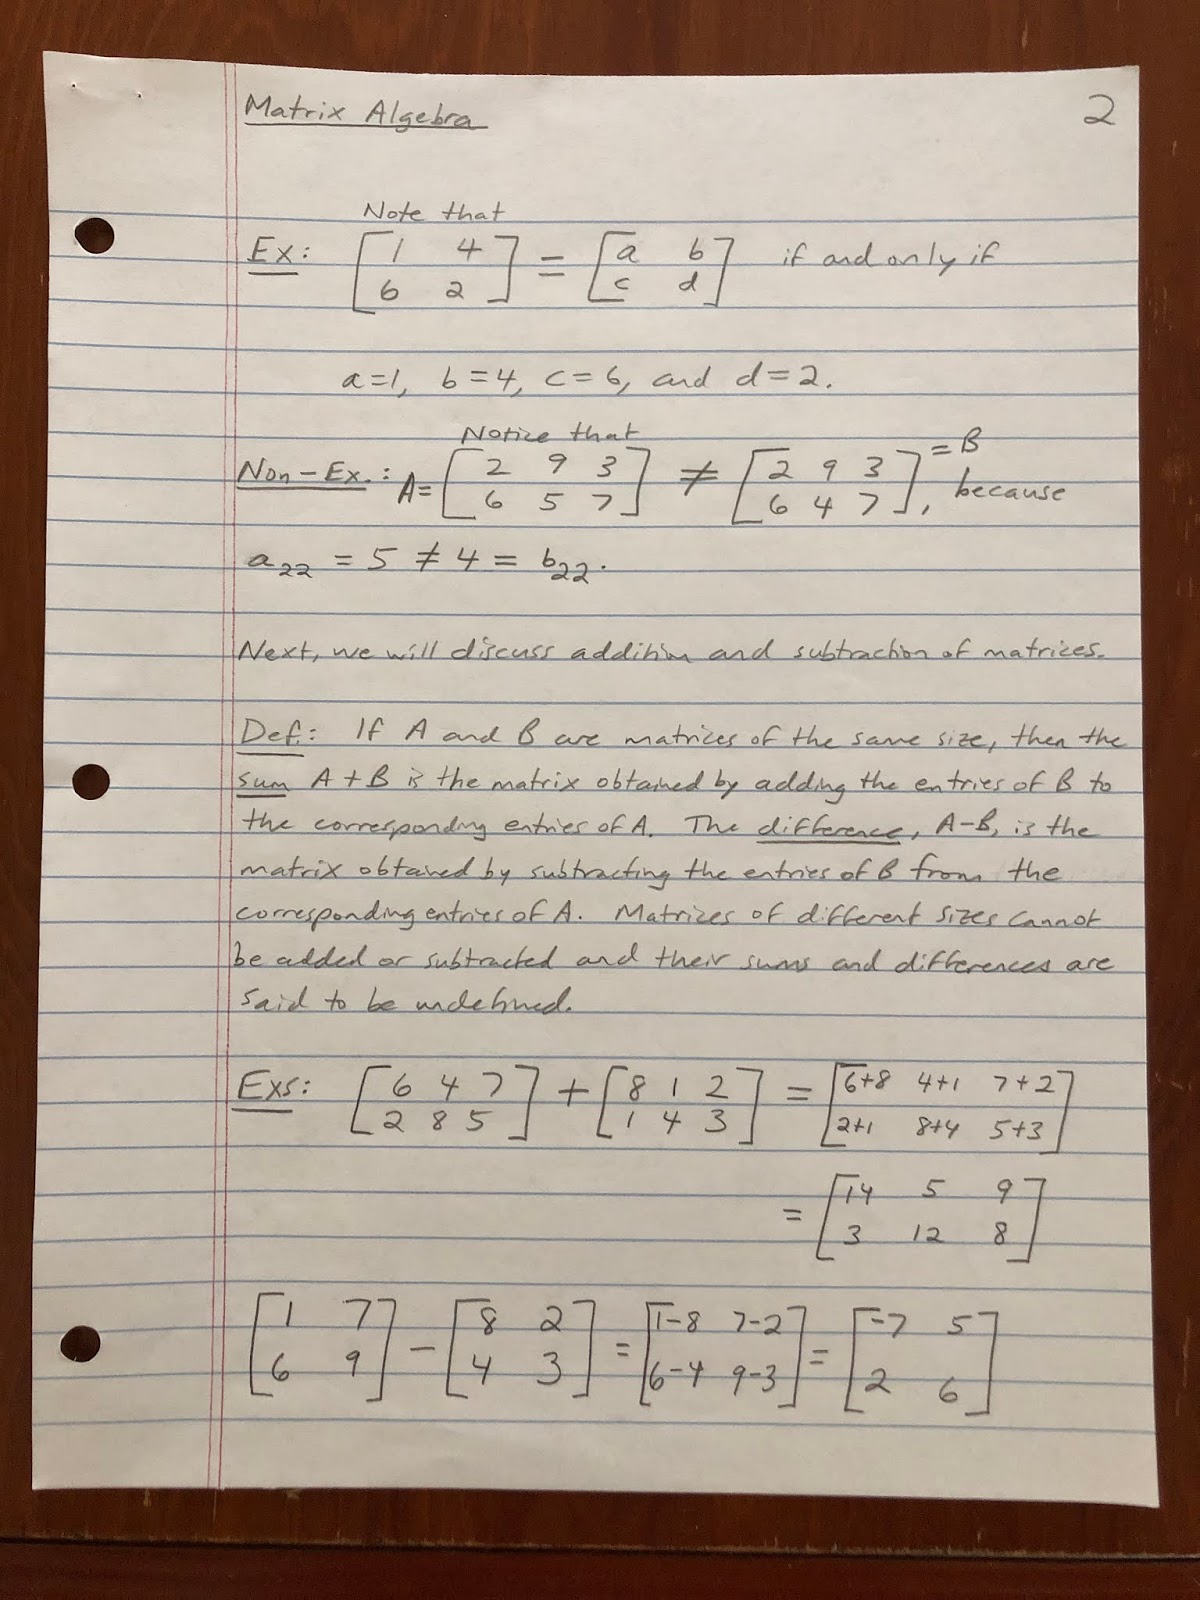 Matrix Algebra 2
Note that
Ex: [1 4; 6 2] = [a b; c d] if and only if
a=1, b=4, c=6, and d=2.
Notice that
Non-Ex.: A= [2 9 3; 6 5 7] ≠ [2 9 3; 6 4 7], =B because
a₂₂ = 5 ≠ 4 = b₂₂.
Next, we will discuss addition and subtraction of matrices.
Def.: If A and B are matrices of the same size, then the
sum A+B is the matrix obtained by adding the entries of B to
the corresponding entries of A. The difference, A-B, is the
matrix obtained by subtracting the entries of B from the
corresponding entries of A. Matrices of different sizes cannot
be added or subtracted and their sums and differences are
said to be undefined.
Exs: [6 4 7; 2 8 5] + [8 1 2; 1 4 3] = [6+8 4+1 7+2; 2+1 8+4 5+3]
= [14 5 9; 3 12 8]
[1 7; 6 9] - [8 2; 4 3] = [1-8 7-2; 6-4 9-3] = [-7 5; 2 6]